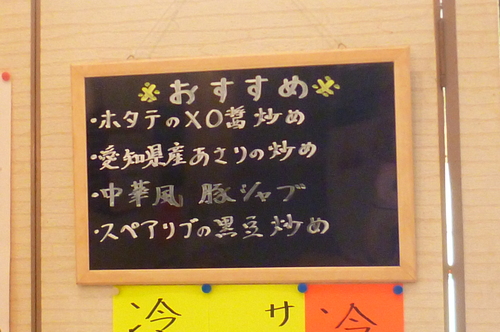 ※おすすめ※
・ホタテのXO醤炒め
・愛知県産あさりの炒め
・中華風 豚シャブ
・スペアリブの黒豆炒め
冷 サ 冷